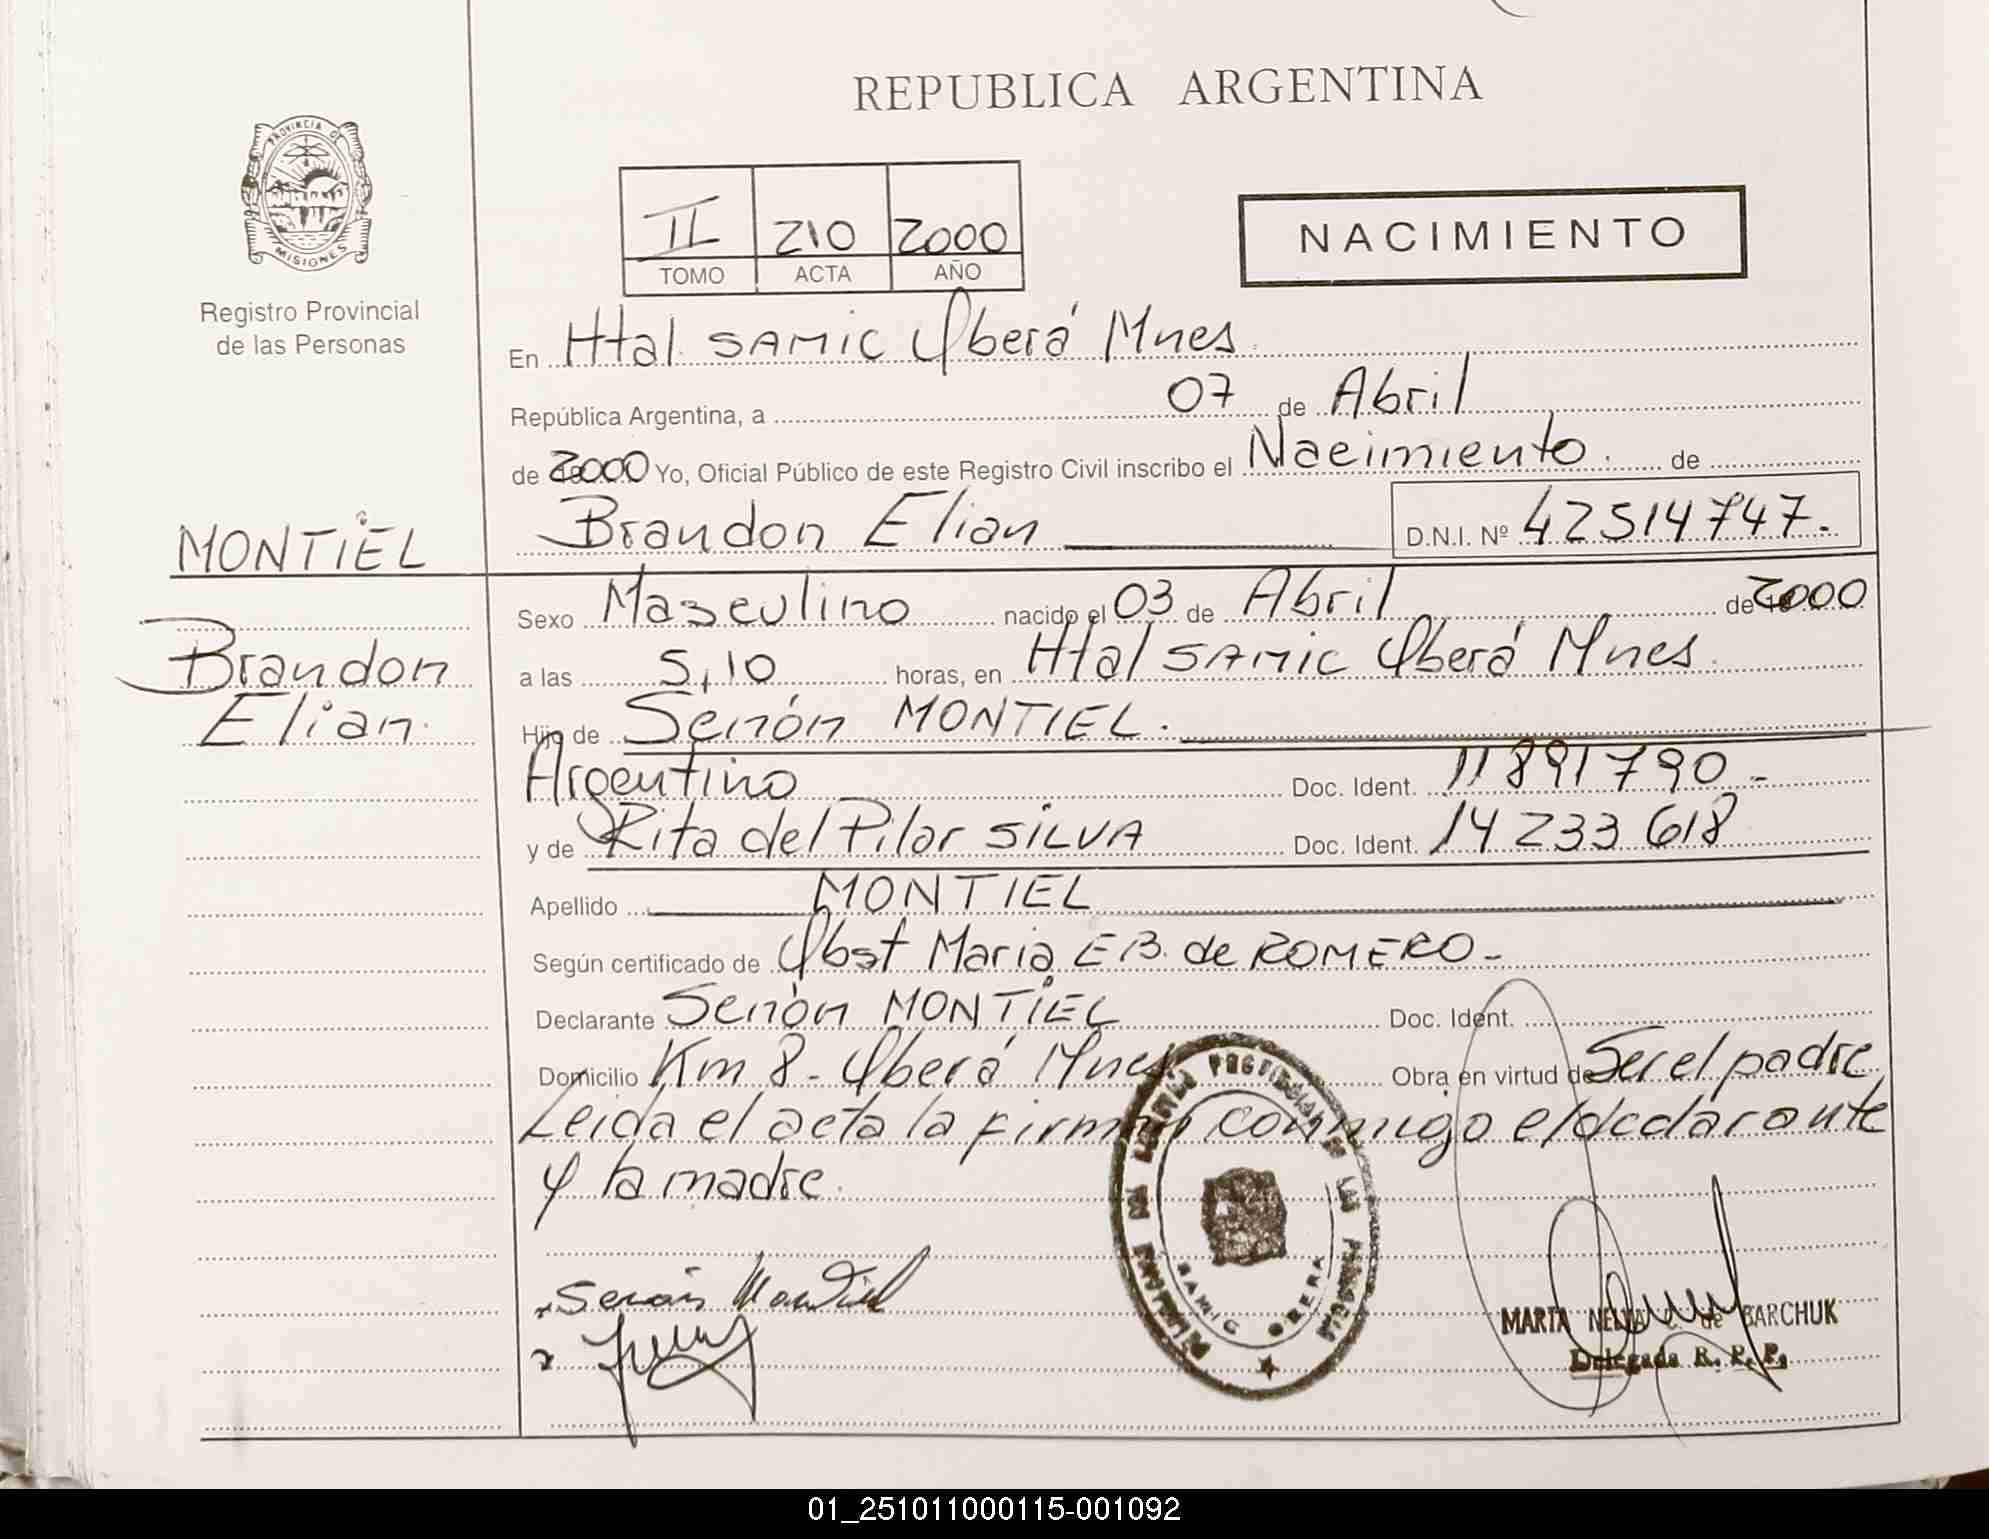 REPUBLICA ARGENTINA
PROVINCIA DE
MISIONES
Registro Provincial
de las Personas
II 210 2000
TOMO ACTA AÑO
NACIMIENTO
En Htal. SAMIC Oberá Mnes.
República Argentina, a 07 de Abril
de 2000 Yo, Oficial Público de este Registro Civil inscribo el Nacimiento. de
Brandon Elian D.N.I. Nº 42514747.-
MONTIEL
Brandon
Elian.
Sexo Masculino nacido el 03 de Abril de 2000
a las 5,10 horas, en Htal SAMIC Oberá Mnes.
Hijo de Senón MONTIEL.
Argentino Doc. Ident. 11891790.-
y de Rita del Pilar SILVA Doc. Ident. 14233618
Apellido MONTIEL
Según certificado de Obst Maria E B. de ROMERO-
Declarante Senón MONTIEL Doc. Ident.
Domicilio Km 8- Oberá Mnes Obra en virtud de Ser el padre
Leida el acta la firman conmigo el declarante
y la madre.
Senón Montiel
SAMIC OBERA
MARTA NELIDA C. de BARCHUK
Delegada R. P. P.
01_251011000115-001092